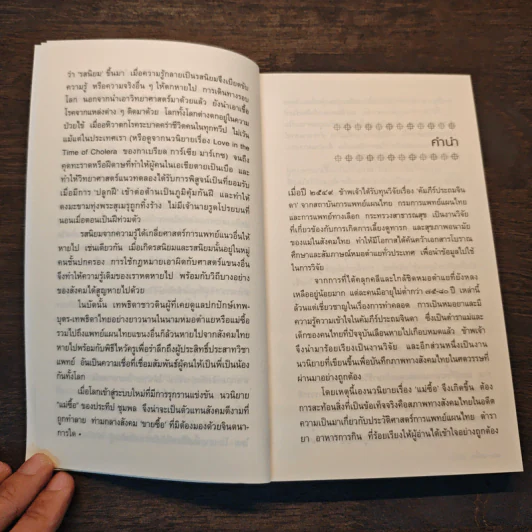 ว่า 'รสนิยม' ขึ้นมา เมื่อความรู้กลายเป็นรสนิยมจึงเบียดขับ
ความรู้ หรือความจริงอื่น ๆ ให้ตกหายไป การเดินทางรอบ
โลก นอกจากนำเอาวิทยาศาสตร์มาด้วยแล้ว ยังนำเอาเชื้อ
โรคจากแหล่งต่าง ๆ ติดมาด้วย โลกทั้งโลกต่างตกอยู่ในความ
ป่วยไข้ เมื่ออหิวาตกโรคระบาดคร่าชีวิตคนในทุกทวีป ไม่เว้น
แม้แต่ในประเทศเรา (หรือดูจากนวนิยายเรื่อง Love in the
Time of Cholera ของกาเบรียล การ์เซีย มาร์เกซ) จนถึง
คุดทะราดหรือฝีดาษที่ทำให้ผู้คนในเอเชียตายเป็นเบือ และ
ทำให้วิทยาศาสตร์แนวทดลองได้รับการพิสูจน์เป็นที่ยอมรับ
เมื่อมีการ 'ปลูกฝี' เข้าต่อต้านเป็นภูมิคุ้มกันฝี และทำให้
ตงมะขามทุ่งพระสุเมรุถูกทิ้งร้าง ไม่มีเจ้านายรูดไปรยบนที่
นอนเมื่อตอนเป็นฝีท่วมตัว
รสนิยมจากความรู้ได้เกลี่ยศาสตร์การแพทย์แนวอื่นให้
หายไป เช่นเดียวกัน เมื่อเกิดรสนิยมและรสนิยมนั้นอยู่ในหมู่
คนชั้นปกครอง การใช้กฎหมายเอาผิดกับศาสตร์แขนงอื่น
จึงทำให้ความรู้เดิมของเราหดหายไป พร้อมกับวิถีบางอย่าง
ของสังคมให้สูญหายไปด้วย
ในบัดนั้น เทพธิดาชาวดินผู้ที่เคยดูแลปกปักษ์เทพ-
บุตร-เทพธิดาไทยอย่างยาวนานในนามหมอตำแยหรือแม่ซื้อ
รวมไปถึงแพทย์แผนไทยแขนงอื่นก็ล้วนหายไปจากสังคมไทย
หายไปพร้อมกับพิธีไหว้ครูเพื่อรำลึกถึงผู้ประสิทธิ์ประสาทวิชา
แพทย์ อันเป็นความเชื่อที่เชื่อมสัมพันธ์ผู้คนให้เป็นพี่เป็นน้อง
กันทั้งโลก
เมื่อโลกเข้าสู่ระบบใหม่ที่มีการรุกรานแข่งขัน นวนิยาย
"แม่ซื้อ" ของประทีป ชุมพล จึงน่าจะเป็นตัวแทนสังคมดีงามที่
ถูกทำลาย ท่ามกลางสังคม 'ขายซื้อ' ที่มีต้องมองด้วยจินตนา-
การใด •
คำนำ
เมื่อปี ๒๕๔๙ ข้าพเจ้าได้รับทุนวิจัยเรื่อง 'คัมภีร์ประถมจิน
ดา' จากสถาบันการแพทย์แผนไทย กรมการแพทย์แผนไทย
และการแพทย์ทางเลือก กระทรวงสาธารณสุข เป็นงานวิจัย
ที่เกี่ยวข้องกับการเกิดการเลี้ยงดูทารก และสุขภาพอนามัย
ของแม่ในสังคมไทย ทำให้มีโอกาสได้ค้นคว้าเอกสารโบราณ
ศึกษาและสัมภาษณ์หมอตำแยทั่วประเทศ เพื่อนำข้อมูลไปใช้
ในการวิจัย
จากการที่ได้คลุกคลีและใกล้ชิดหมอตำแยที่ยังหลง
เหลืออยู่น้อยมาก แต่ละคนมีอายุไม่ต่ำกว่า ๗๕-๘๐ ปี เหล่านี้
ล้วนแต่เชี่ยวชาญในเรื่องการทำคลอด การเป็นหมอยาและมี
ความรู้ความเข้าใจในคัมภีร์ประถมจินดา ซึ่งเป็นตำราแม่และ
เด็กของคนไทยที่ปัจจุบันเลือนหายไปเกือบหมดแล้ว ข้าพเจ้า
จึงนำมารร้อยเรียงเป็นงานวิจัย และอีกส่วนหนึ่งเป็นงาน
นวนิยายที่เขียนขึ้นเพื่อบันทึกภาพทางสังคมไทยในศตวรรษที่
ผ่านมาอย่างถูกต้อง
โดยเหตุนี้เองนวนิยายเรื่อง "แม่ซื้อ" จึงเกิดขึ้น ต้อง
การสะท้อนสิ่งที่เป็นข้อเท็จจริงคือสภาพทางสังคมไทยในอดีต
ความเป็นมาเกี่ยวกับประวัติศาสตร์การแพทย์แผนไทย ตำรา
ยา อาหารการกิน ที่ร้อยเรียงให้ผู้อ่านได้เข้าใจอย่างถูกต้อง